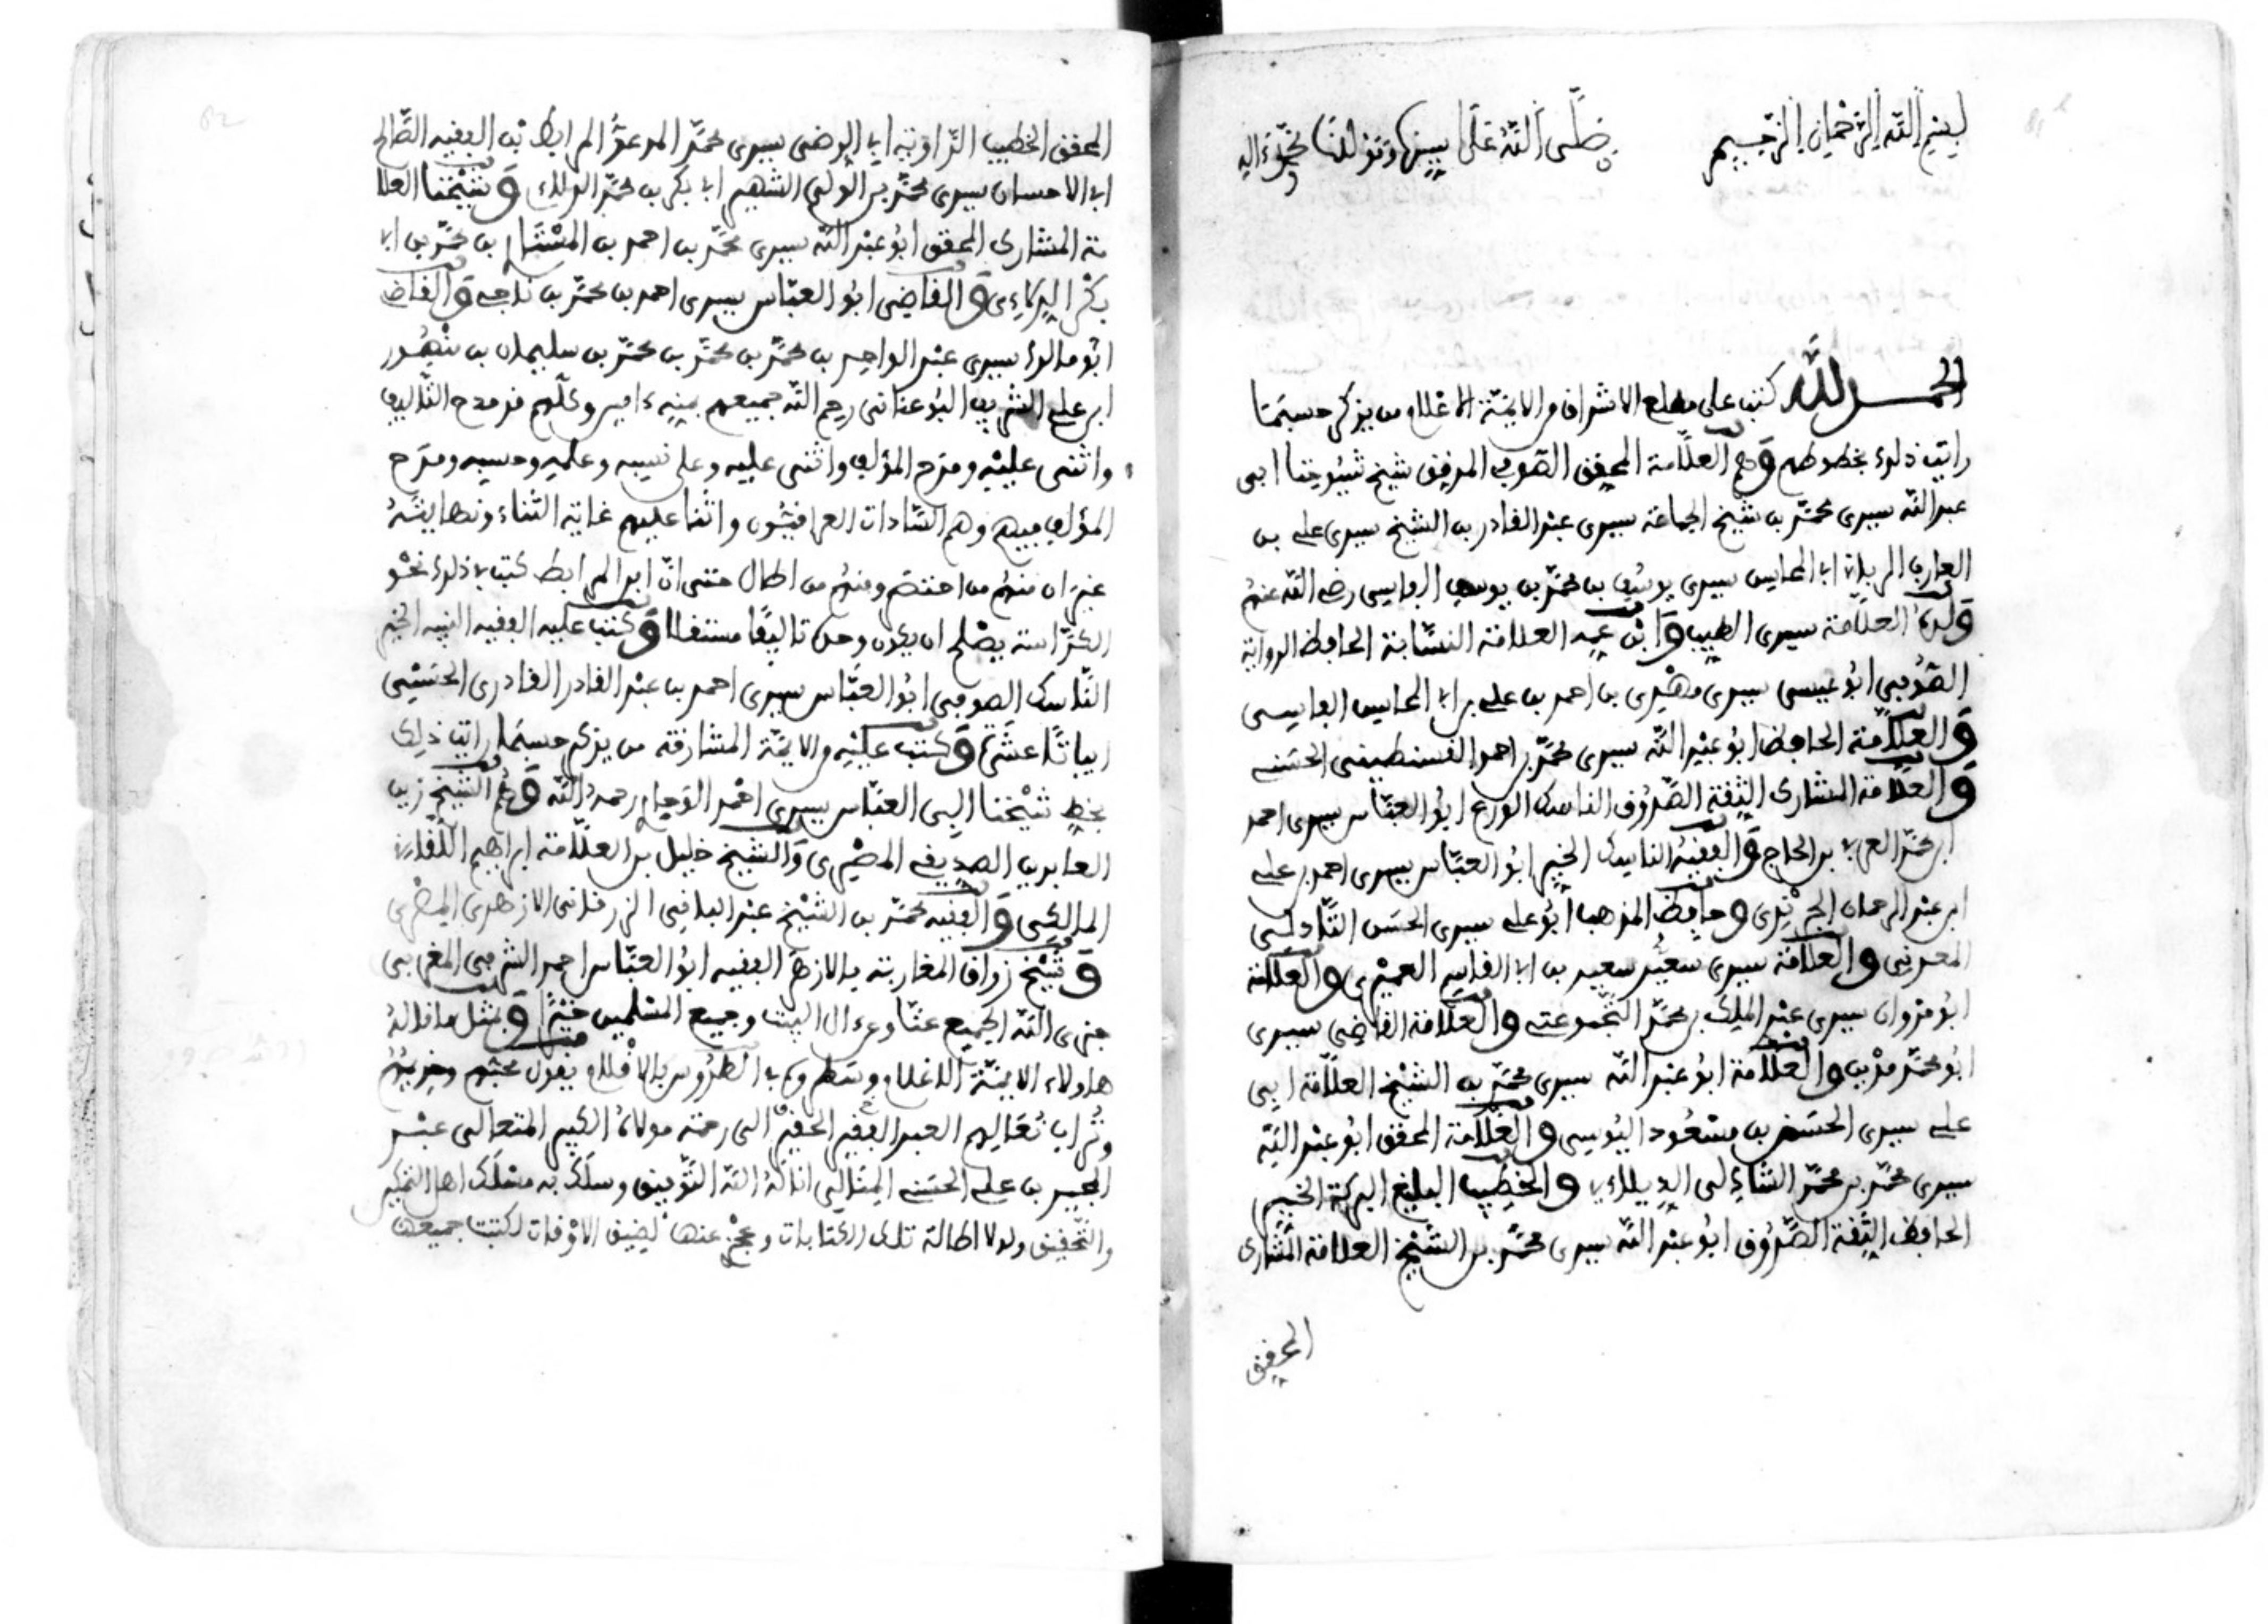 بسم الله الرحمان الرحيم صلى الله على سيدنا ومولانا محمد وءاله
الحمد لله كتب على مطلع الاشراف من الايمة الاعلام من يذكر حسبما
رايت ذلك بخطوطهم وهم العلامة المحقق الصوفي المدقق شيخ شيوخنا ابي
عبد الله سيدي محمد بن شيخ الجماعة سيدي عبد القادر بن الشيخ سيدي علي بن
العارف الرباني ابي المحاسن سيدي يوسف بن محمد بن يوسف الفاسي رضي الله عنهم
وولده العلامة سيدي الطيب وابن عمه العلامة النسابة الحافظ الرواية
الصوفي ابو عيسى سيدي مهدي بن احمد بن علي بن ابي المحاسن الفاسي
والعلامة الحافظ ابو عبد الله سيدي محمد بن احمد القسنطيني الحسني
والعلامة المشارك الثقة الصدوق الناسك الورع ابو العباس سيدي احمد
ابن محمد العربي بن الحاج والفقيه الناسك الخير ابو العباس سيدي احمد بن علي
ابن عبد الرحمان الجرندي وحافظ المذهب ابو علي سيدي الحسن التادلي
المعدني والعلامة سيدي سعيد سعيد بن ابي القاسم العميري والعلامة
ابو مروان سيدي عبد الملك بن محمد التجموعتي والعلامة القاضي سيدي
ابو محمد مدين والعلامة ابو عبد الله سيدي محمد بن الشيخ العلامة ابي
علي سيدي الحسن بن مسعود اليوسي والعلامة المحقق ابو عبد الله
سيدي محمد بن محمد الشاذلي الديلاءي والخطيب البليغ البركة الخير
الحافظ الثقة الصدوق ابو عبد الله سيدي محمد بن الشيخ العلامة المشارك
المحقق
المحقق الخطيب الراوية ابي الرضى سيدي محمد المدعو المرابط بن الفقيه الصالح
ابي الاحسان سيدي محمد بن الولي الشهير ابي بكر بن محمد الدلاءي وشيخنا العلا
مة المشارك المحقق ابو عبد الله سيدي محمد بن احمد بن المسناوي بن محمد بن ابي
بكر الدلاءي والقاضي ابو العباس سيدي احمد بن محمد بن ناجي والقاضي
ابو مالك سيدي عبد الواحد بن محمد بن محمد بن محمد بن سليمان بن منصور
ابن علي الشريف البوعناني رحم الله جميعهم بمنه ءامين وكلهم قد مدح التاليف
واثنى عليه ومدح المؤلف واثنى عليه وعلى نسبه وعلمه وحسبه ومدح
المؤلف فيهم وهم السادات العراقيون واثنا عليهم غاية الثناء ونهايته
غير ان منهم من اختصر ومنهم من اطال حتى ان ابن المرابط كتب في ذلك نحو
الكراسة يصلح ان يكون وحده تاليفا مستقلا وكتب عليه الفقيه النبيه الخير
الناسك الصوفي ابو العباس سيدي احمد بن عبد القادر القادري الحسني
ابياتا عشرة وكتب عليه من الايمة المشارقة من يذكر حسبما رايت ذلك
بخط شيخنا ابي العباس سيدي احمد الوجاري رحمه الله وهم الشيخ زين
العابدين الصديقي المصري والشيخ خليل بن العلامة ابراهيم اللقاني
المالكي والفقيه محمد بن الشيخ عبد الباقي الزرقاني الازهري المصري
وشيخ رواق المغاربة بالازهر الفقيه ابو العباس احمد الشرفي المغربي
جزى الله الجميع عنا وعن ءال البيت وجميع المسلمين خيرا وبمثل ما قاله
هاولاء الايمة الاعلام وسطروه في الطروس بالاقلام يقول محبهم وخديمهم
وتراب نعالهم العبد الفقير الحقير الى رحمة مولاه الكبير المتعالي عبد
المجيد بن علي الحسني المنالي اناله الله التوفيق وسلك به مسلك اهل التحرير
والتحقيق ولولا اطالة تلك الكتابات وعجز عنها لضيق الاوقات لكتبت جميعها